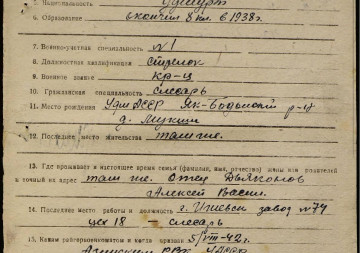 5. Национальность удмурт
6. Образование окончил 8 кл. в 1938 г.
7. Военно-учетная специальность №1
8. Должностная квалификация стрелок
9. Военное звание кр-ц
10. Гражданская специальность слесарь
11. Место рождения Удм АССР Як-Бодьинский р-н
д.
12. Последнее место жительства там же.
13. Где проживает в настоящее время семья (фамилия, имя, отчество) жены или родителей
и точный их адрес там же. отец Дьяконов
Алексей Васил.
14. Последнее место работы и должность г. Ижевск завод №74
цех 18 – слесарь
15. Каким райгорвоенкоматом и когда призван 5/VIII-42 г.
РВК УАССР